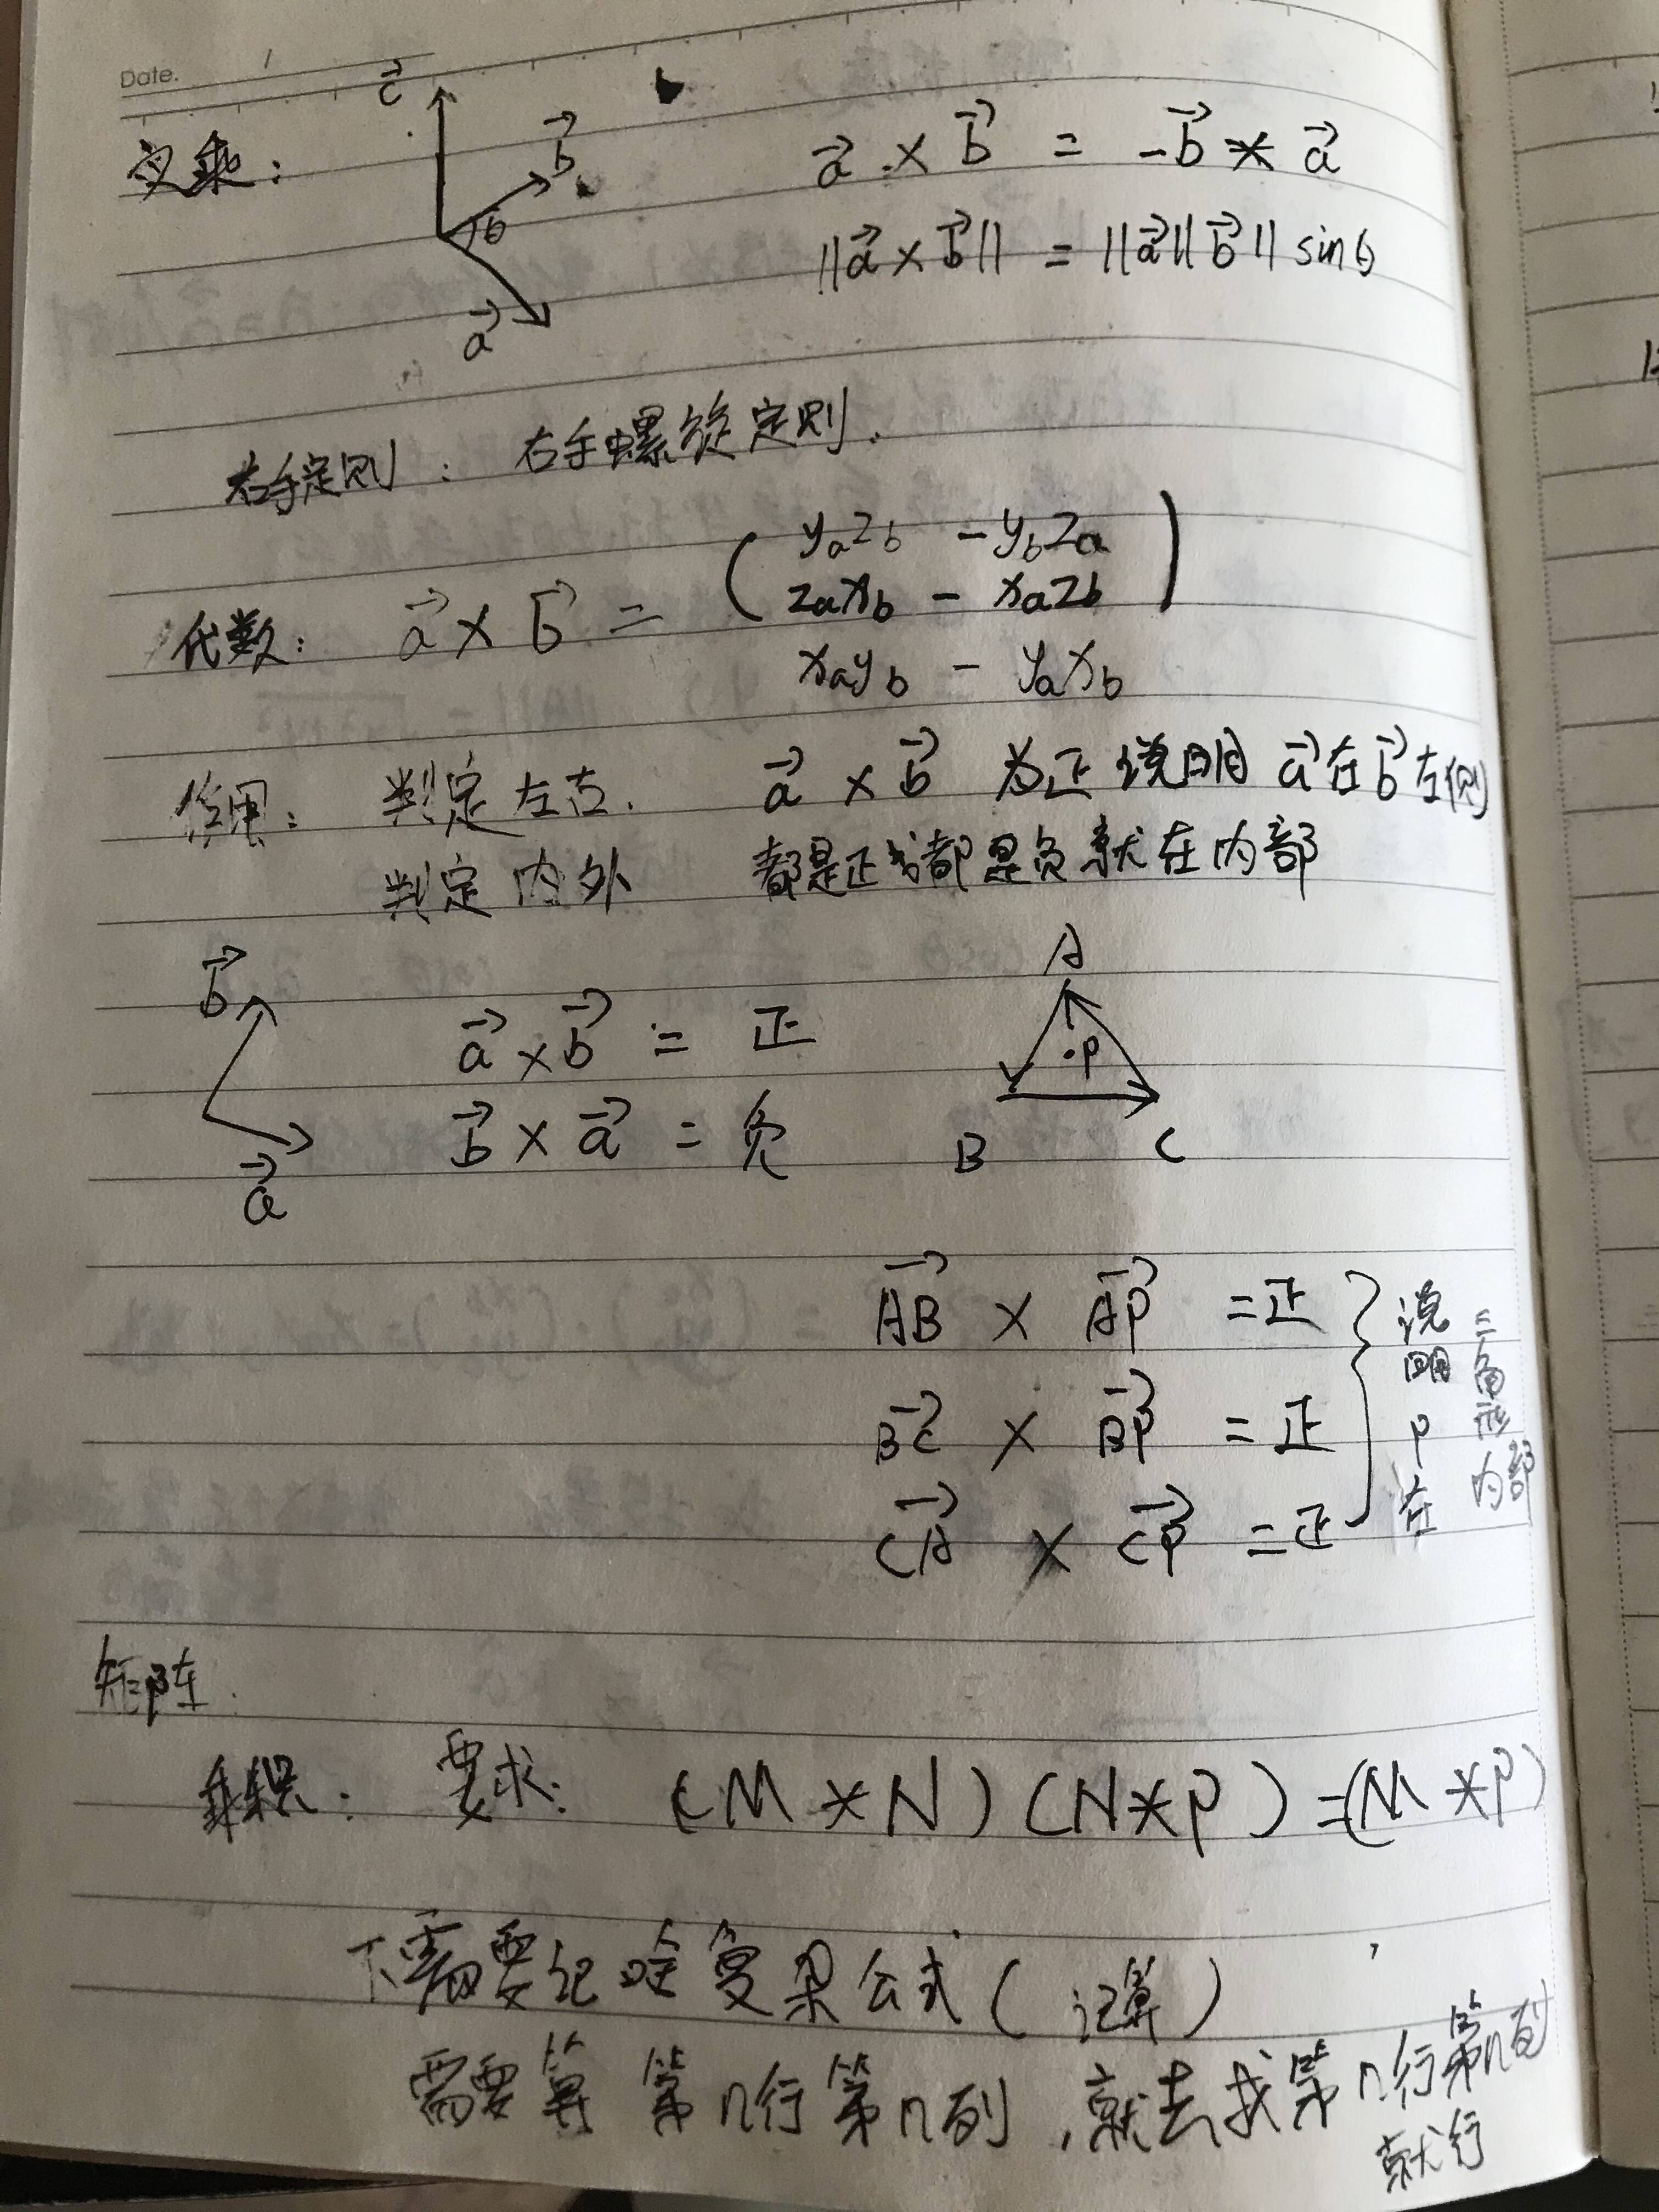 Date.
叉乘：
c
b
θ
a
a × b = -b * a
||a × b|| = ||a||b|| sinθ
右手定则： 右手螺旋定则.
代数： a × b = ( yₐz_b - y_bzₐ
zₐx_b - xₐz_b )
xₐy_b - yₐx_b
作用： 判定左右. a × b 为正 说明 a在b左侧
判定内外 都是正或都是负 就在内部
b
a × b = 正
b × a = 负
a
A
P
B C
AB × AP = 正
BC × BP = 正
CA × CP = 正
说明P在
三角形内部
矩阵
乘积： 要求： (M * N) (N * P) = (M * P)
不需要记啥复杂公式 ( 计算 )
需要算 第n行第n列，就去找第n行第n列
就行